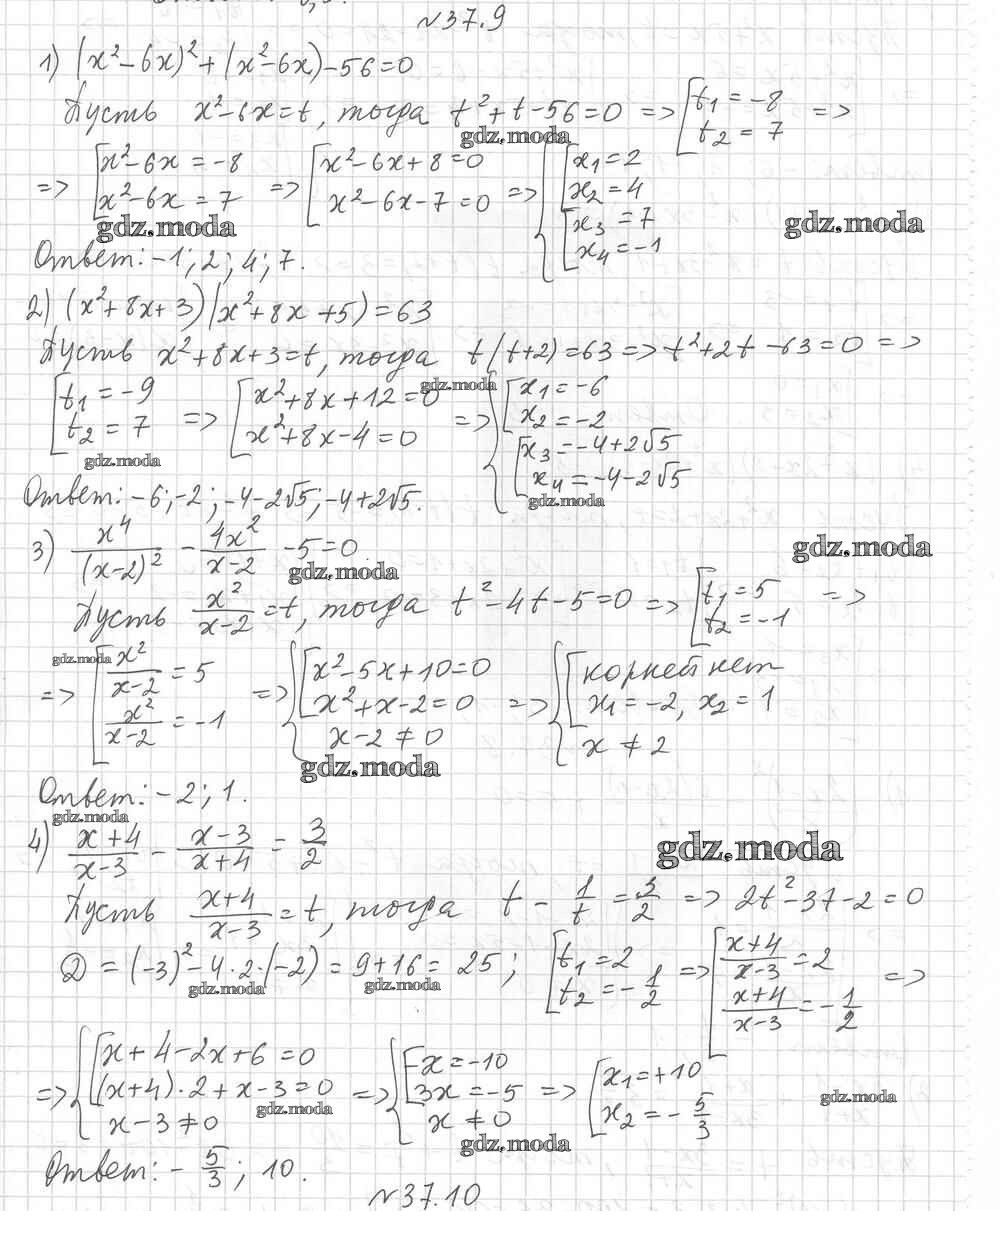 №37.9
1) (x²-6x)²+(x²-6x)-56=0
Пусть x²-6x=t, тогда t²+t-56=0 => [t₁=-8 =>
t₂=7
gdz.moda
=> [x²-6x=-8 => [x²-6x+8=0 => {[x₁=2
x²-6x=7 x²-6x-7=0 x₂=4
[x₃=7
x₄=-1
gdz.moda gdz.moda
Ответ: -1; 2; 4; 7.
2) (x²+8x+3)(x²+8x+5)=63
Пусть x²+8x+3=t, тогда t(t+2)=63 => t²+2t-63=0 =>
[t₁=-9 => [x²+8x+12=0 => {[x₁=-6
t₂=7 x²+8x-4=0 x₂=-2
[x₃=-4+2√5
x₄=-4-2√5
gdz.moda
gdz.moda
gdz.moda
Ответ: -6; -2; -4-2√5; -4+2√5.
3) x⁴/(x-2)² - 4x²/(x-2) -5=0.
gdz.moda gdz.moda
Пусть x²/(x-2)=t, тогда t²-4t-5=0 => [t₁=5 =>
t₂=-1
gdz.moda
=> [x²/(x-2)=5 => {[x²-5x+10=0 => {[корней нет
x²/(x-2)=-1 x²+x-2=0 x₁=-2, x₂=1
x-2≠0 x≠2
gdz.moda
Ответ: -2; 1.
gdz.moda
4) (x+4)/(x-3) - (x-3)/(x+4) = 3/2
gdz.moda
Пусть (x+4)/(x-3)=t, тогда t - 1/t = 3/2 => 2t²-3t-2=0
D=(-3)²-4·2·(-2)=9+16=25; [t₁=2 => [(x+4)/(x-3)=2 =>
t₂=-1/2 (x+4)/(x-3)=-1/2
gdz.moda gdz.moda
=> {[x+4-2x+6=0 => {[-x=-10 => [x₁=+10
(x+4)·2+x-3=0 3x=-5 x₂=-5/3
x-3≠0 x≠0
gdz.moda gdz.moda gdz.moda
Ответ: -5/3; 10.
№37.10